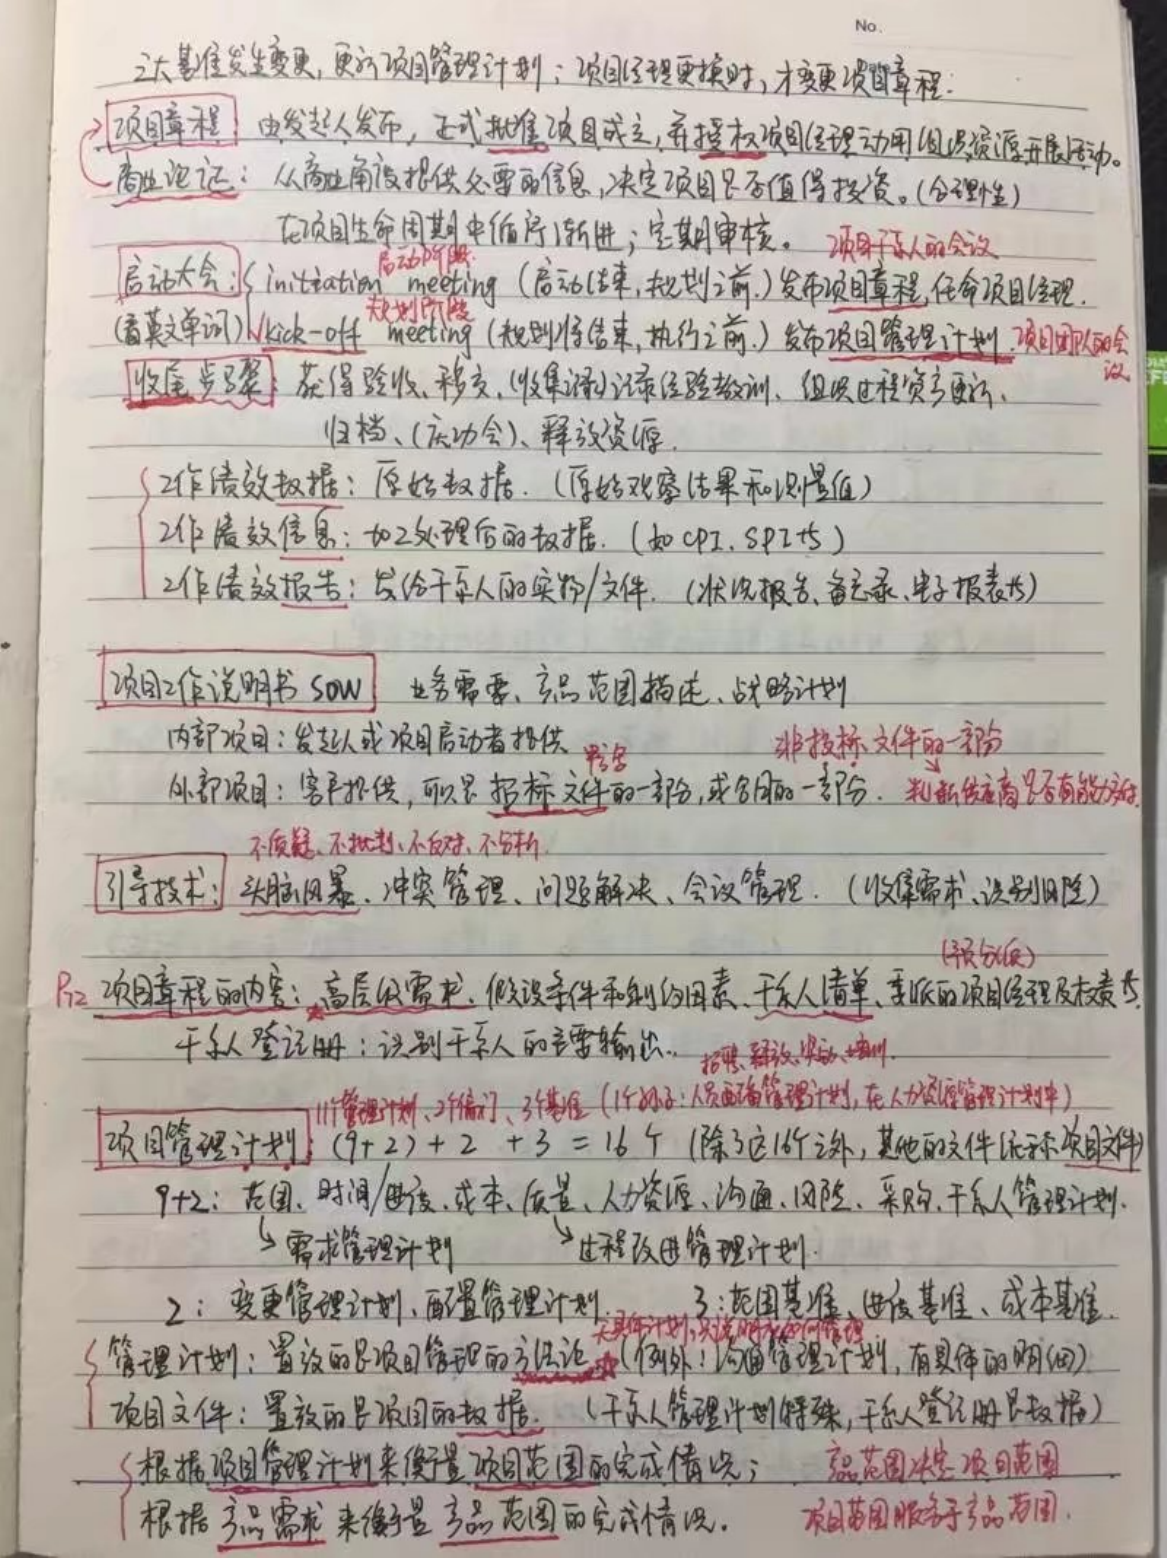 No.
三大基准发生变更,更新项目管理计划;项目经理更换时,才变更项目章程.
项目章程 由发起人发布,正式批准项目成立,并授权项目经理动用组织资源开展活动。
商业论证:从商业角度提供必要的信息,决定项目是否值得投资。(合理性)
在项目生命周期中循序渐进;定期审核。 项目干系人的会议
启动阶段.
启动大会: initiation meeting (启动结束,规划之前.)发布项目章程,任命项目经理.
规划阶段
(看英文单词) kick-off meeting (规划将结束,执行之前.) 发布项目管理计划 项目团队的会议
收尾步骤: 获得验收、移交、(收集记录)记录经验教训、组织过程资产更新、
归档、(庆功会)、释放资源.
工作绩效数据:原始数据. (原始观察结果和测量值)
工作绩效信息:加工处理后的数据. (如CPI、SPI等)
工作绩效报告:发给干系人的实物/文件. (状况报告、备忘录、电子报表等)
项目工作说明书 SOW 业务需要、产品范围描述、战略计划
内部项目:发起人或项目启动者提供
非投标文件的一部分
外部项目:客户提供,可以是招标文件的一部分,或合同的一部分. 判断供应商是否有能力交付.
不质疑、不批判、不反对、不分析.
引导技术: 头脑风暴、冲突管理、问题解决、会议管理. (收集需求、识别风险)
P72 项目章程的内容: 高层级需求、假设条件和制约因素、干系人清单、委派的项目经理及权责等.
干系人登记册:识别干系人的主要输出.
招聘、释放、奖励、培训.
11个管理计划、2个偏门、3个基准 (1个孙子:人员配备管理计划,在人力资源管理计划中)
项目管理计划: (9+2)+2 +3 = 16个 (除了这16个之外,其他的文件统称项目文件)
9+2: 范围、时间/进度、成本、质量、人力资源、沟通、风险、采购、干系人管理计划.
↳需求管理计划 ↘过程改进管理计划.
2: 变更管理计划、配置管理计划. 3:范围基准、进度基准、成本基准.
无具体计划,只说明如何管理
管理计划:置放的是项目管理的方法论 (例外:沟通管理计划,有具体的明细)
项目文件:置放的是项目的数据. (干系人管理计划特殊,干系人登记册是数据)
根据项目管理计划来衡量项目范围的完成情况; 产品范围决定项目范围
根据产品需求来衡量产品范围的完成情况。 项目范围服务于产品范围.